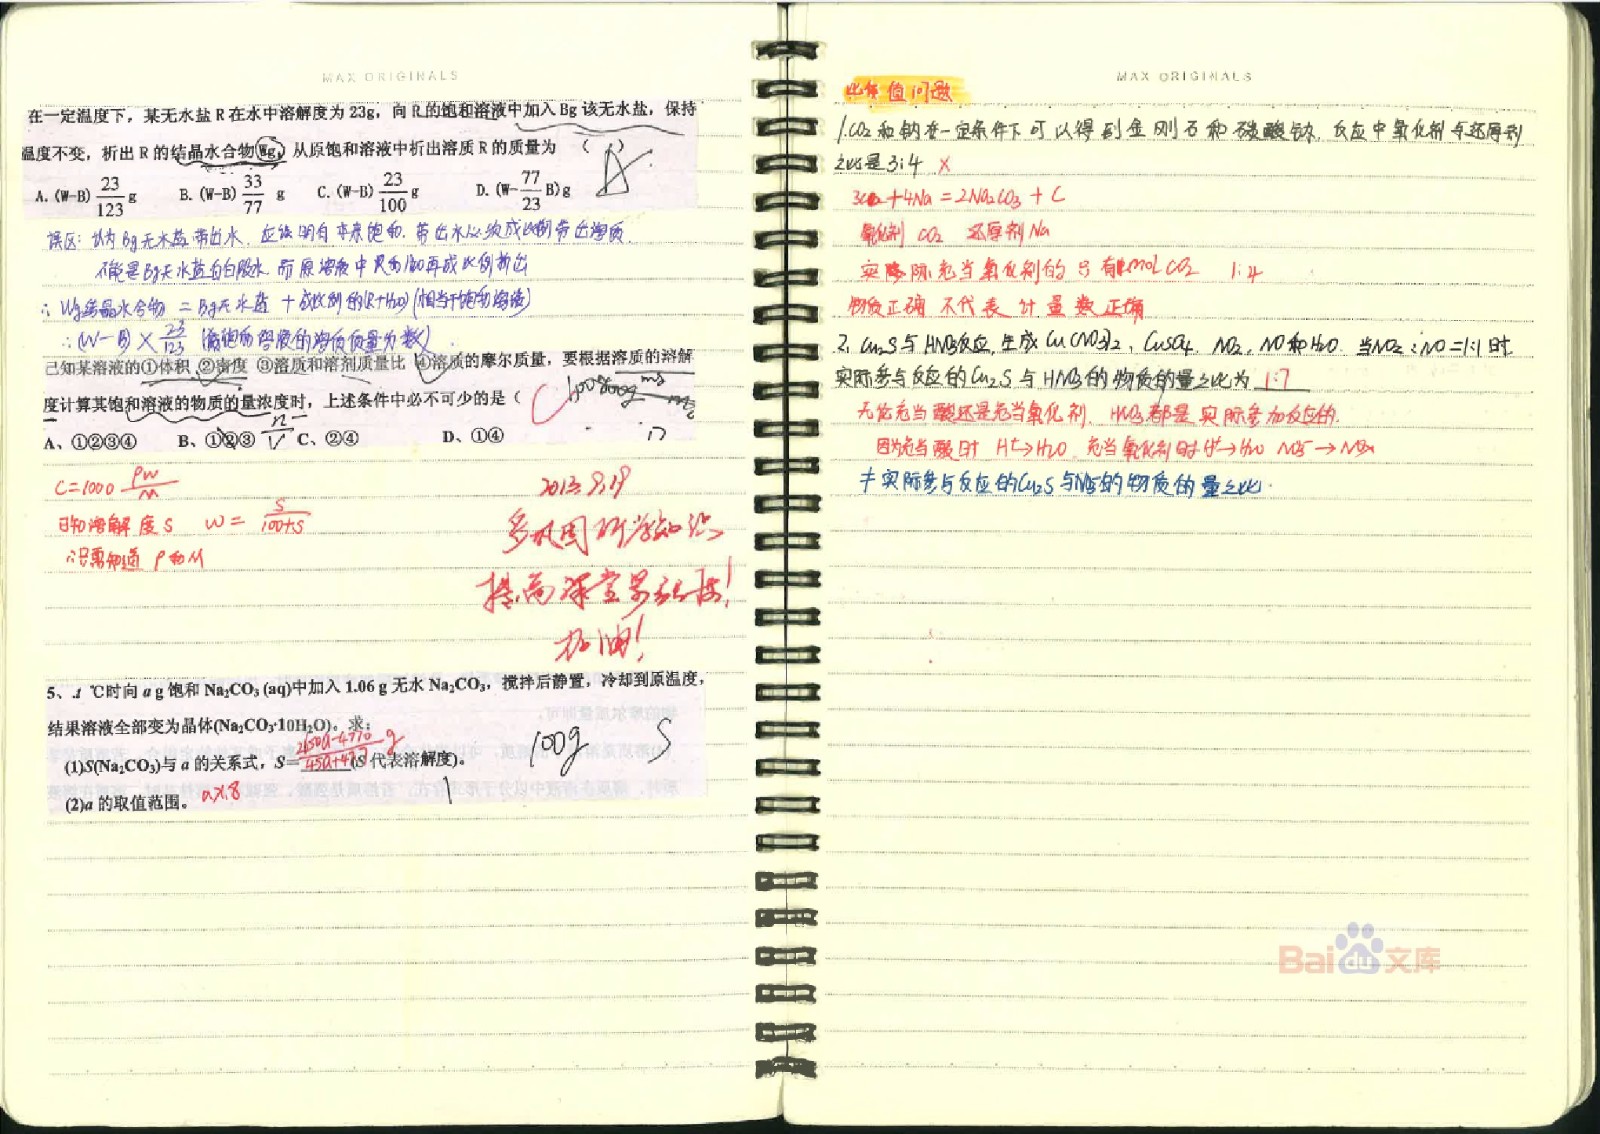 MAX ORIGINALS
在一定温度下，某无水盐 R 在水中溶解度为 23g，向 R 的饱和溶液中加入 Bg 该无水盐，保持
温度不变，析出 R 的结晶水合物 Wg，从原饱和溶液中析出溶质 R 的质量为 （ ） A
A. (W-B) 23/123 g B. (W-B) 33/77 g C. (W-B) 23/100 g D. (W- 77/23 B)g
误区：认为Bg无水盐带出水，应该明白本来饱和，带出水必须成比例带出溶质.
∴ Wg结晶水合物 = Bg无水盐 + 成比例的(R+H₂O) (相当于饱和溶液)
∴ (W-B) × 23/123
已知某溶液的①体积 ②密度 ③溶质和溶剂质量比 ④溶质的摩尔质量，要根据溶质的溶解
度计算其饱和溶液的物质的量浓度时，上述条件中必不可少的是（ C
A、①②③④ B、①②③ n/V C、②④ D、①④
C=1000 ρw/M
已知溶解度S w = S/100+S
∴只需知道 ρ和M
2013.9.19
多巩固所学知识
提高课堂
加油!
5、.t ℃时向 a g 饱和 Na₂CO₃ (aq)中加入 1.06 g 无水 Na₂CO₃，搅拌后静置，冷却到原温度，
结果溶液全部变为晶体(Na₂CO₃·10H₂O)。求：
(1)S(Na₂CO₃)与 a 的关系式，S= (S 代表溶解度)。
100g S
(2)a 的取值范围。
MAX ORIGINALS
比值问题
1.CO₂和钠在一定条件下可以得到金刚石和碳酸钠，反应中氧化剂与还原剂
之比是3:4 ×
3CO₂+4Na=2Na₂CO₃+C
氧化剂 CO₂ 还原剂Na
实际充当氧化剂的只有1mol CO₂ 1:4
物质正确 不代表 计量数正确
2. Cu₂S与HNO₃反应，生成Cu(NO₃)₂、CuSO₄、NO₂、NO和H₂O. 当NO₂:NO=1:1时，
实际参与反应的Cu₂S与HNO₃的物质的量之比为 1:7
无论充当酸还是充当氧化剂，HNO₃都是实际参加反应的.
因为充当酸时 H⁺→H₂O，充当氧化剂时H⁺→H₂O NO₃⁻→NOx
≠实际参与反应的Cu₂S与NO₃⁻的物质的量之比.
Baidu文库